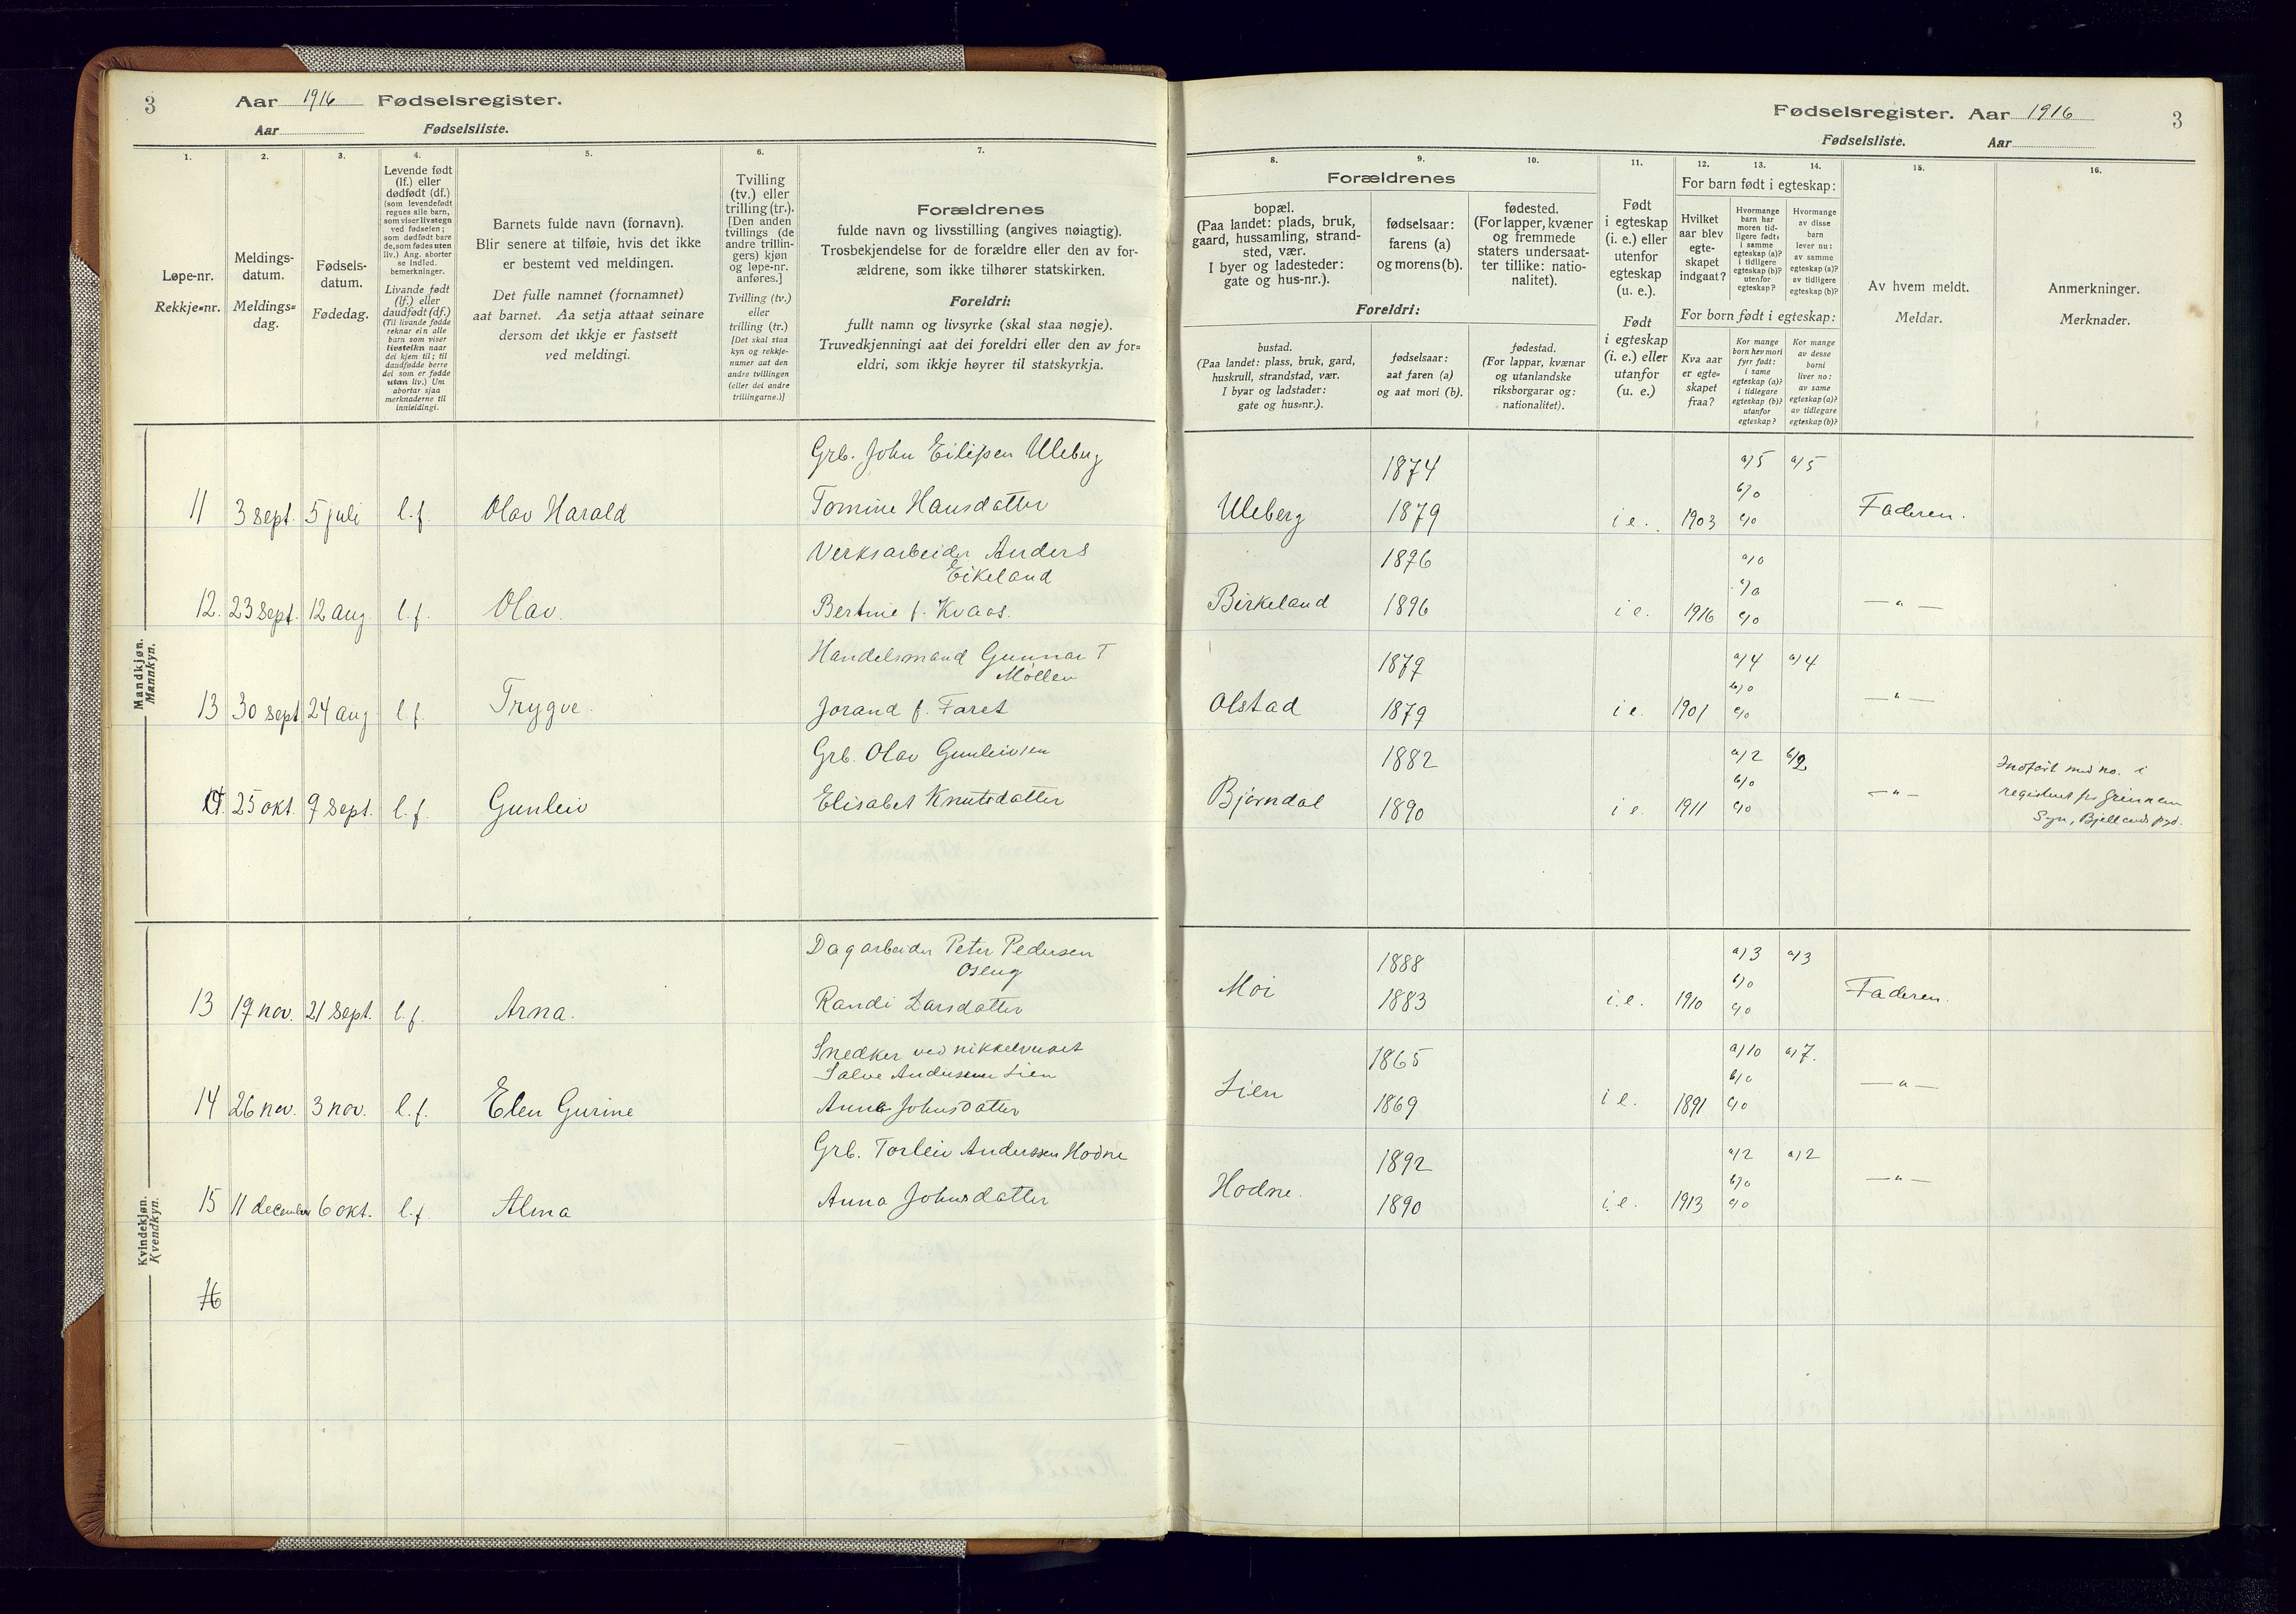 3
Aar 1916 Fødselsregister.
Aar Fødselsliste.
1.
2.
3.
4.
5.
6.
7.
Løpe-nr.
Rekkje-nr.
Meldings-
datum.
Meldings-
dag.
Fødsels-
datum.
Fødedag.
Levende født
(lf.) eller
dødfødt (df.)
(som levendefødt
regnes alle barn,
som viser livstegn
ved fødselen;
som dødfødt bare
de, som fødes uten
liv.) Ang. aborter
se indled.
bemerkninger.
Livande født
(lf.) eller
daudfødt (df.)
(Til livande fødde
reknar ein alle
barn som viser
livsteikn naar
dei kjem til; til
daudfødde berre
dei som er fødde
utan liv.) Um
abortar sjaa
merknaderne til
innleidingi.
Barnets fulde navn (fornavn).
Blir senere at tilføie, hvis det ikke
er bestemt ved meldingen.
Det fulle namnet (fornamnet)
aat barnet. Aa setja attaat seinare
dersom det ikkje er fastsett
ved meldingi.
Tvilling
(tv.) eller
trilling (tr.).
[Den anden
tvillings (de
andre trillin-
gers) kjøn
og løpe-nr.
anføres.]
Tvilling (tv.)
eller
trilling (tr.)
[Det skal staa
kyn og rekkje-
numer aat den
andre tvillingen
(eller dei andre
trillingarne.)]
Forældrenes
fulde navn og livsstilling (angives nøiagtig).
Trosbekjendelse for de forældre eller den av for-
ældrene, som ikke tilhører statskirken.
Foreldri:
fullt namn og livsyrke (skal staa nøgje).
Truvedkjenningi aat dei foreldri eller den av for-
eldri, som ikkje høyrer til statskyrkja.
Mandkjøn.
Mannkyn.
Grb. John Eilifsen Uleberg
11 3 sept. 5 juli l.f. Olav Harald Tomine Hansdatter
Verksarbeider Anders
Eikeland
12. 23 sept. 12 aug l.f. Olav. Bertine f. Kvaas.
Handelsmand Gunnar T
Møllen
13 30 sept 24 aug l.f. Trygve. Jorand f. Faret
Grb. Olav Gunleivsen
14. 25 okt. 9 sept. l.f. Gunleiv Elisabet Knutsdatter
Kvindekjøn.
Kvendkyn.
Dagarbeider Peter Pedersen
Oseng
13 19 nov. 21 sept. l.f. Arna. Randi Larsdatter
Snedker ved nikkelverket
Salve Andersen Lien
14 26 nov. 3 nov. l.f. Elen Gurine Anna Johnsdatter
Grb. Torleiv Anderssen Hodne
15 11 december 6 okt. l.f. Alma Anna Johnsdatter
16
Fødselsregister. Aar 1916
3
Fødselsliste. Aar
8.
9.
10.
11.
12.
13.
14.
15.
16.
Forældrenes
bopæl.
(Paa landet: plads, bruk,
gaard, hussamling, strand-
sted, vær.
I byer og ladesteder:
gate og hus-nr.).
fødselsaar:
farens (a)
og morens (b).
fødested.
(For lapper, kvæner
og fremmede
staters undersaat-
ter tillike: natio-
nalitet).
Foreldri:
bustad.
(Paa landet: plass, bruk, gard,
huskrull, strandstad, vær.
I byar og ladstader:
gate og hus-nr.).
fødselsaar:
aat faren (a)
og aat mori (b).
fødestad.
(For lappar, kvænar
og utanlandske
riksborgarar og:
nationalitet).
Født
i egteskap
(i. e.) eller
utenfor
egteskap
(u. e.).
Født
i egteskap
(i. e.) eller
utanfor
(u. e.)
For barn født i egteskap:
Hvilket
aar blev
egte-
skapet
indgaat?
Hvormange
barn har
moren tid-
ligere født:
i samme
egteskap (a)?
i tidligere
egteskap (b)?
utenfor
egteskap?
Hvormange
av disse
barn
lever nu:
av samme
egteskap (a)?
av tidligere
egteskap (b)?
For born født i egteskap:
Kva aar
er egte-
skapet
fraa?
Kor mange
born hev mori
fyrr født:
i same
egteskap (a)?
i tidlegare
egteskap (b)?
utanfor
egteskap?
Kor mange
av desse
borni
liver no:
av same
egteskap (a)?
av tidlegare
egteskap (b)?
Av hvem meldt.
Meldar.
Anmerkninger.
Merknader.
1874 a/5 a/5
b/0
Uleberg 1879 i e. 1903 c/0 Faderen.
1896 a/0
b/0
Birkeland 1896 i e. 1916 c/0 — " —
1879 a/4 a/4
b/0
Olstad 1879 i e. 1901 c/0 — " —
1882 a/2 b/2
b/0
Bjørndal 1890 i e. 1911 c/0 — " —
Indført med no. i
registeret for Grinnem
Sgn, Bjelland pgd.
1888 a/3 a/3
b/0
Moi 1883 i.e. 1910 c/0 Faderen.
1865 a/10 a/7.
b/0
Lien 1869 i e. 1891 c/0 — " —
1892 a/2 a/2
b/0
Hodne. 1890 i.e. 1913 c/0 — " —